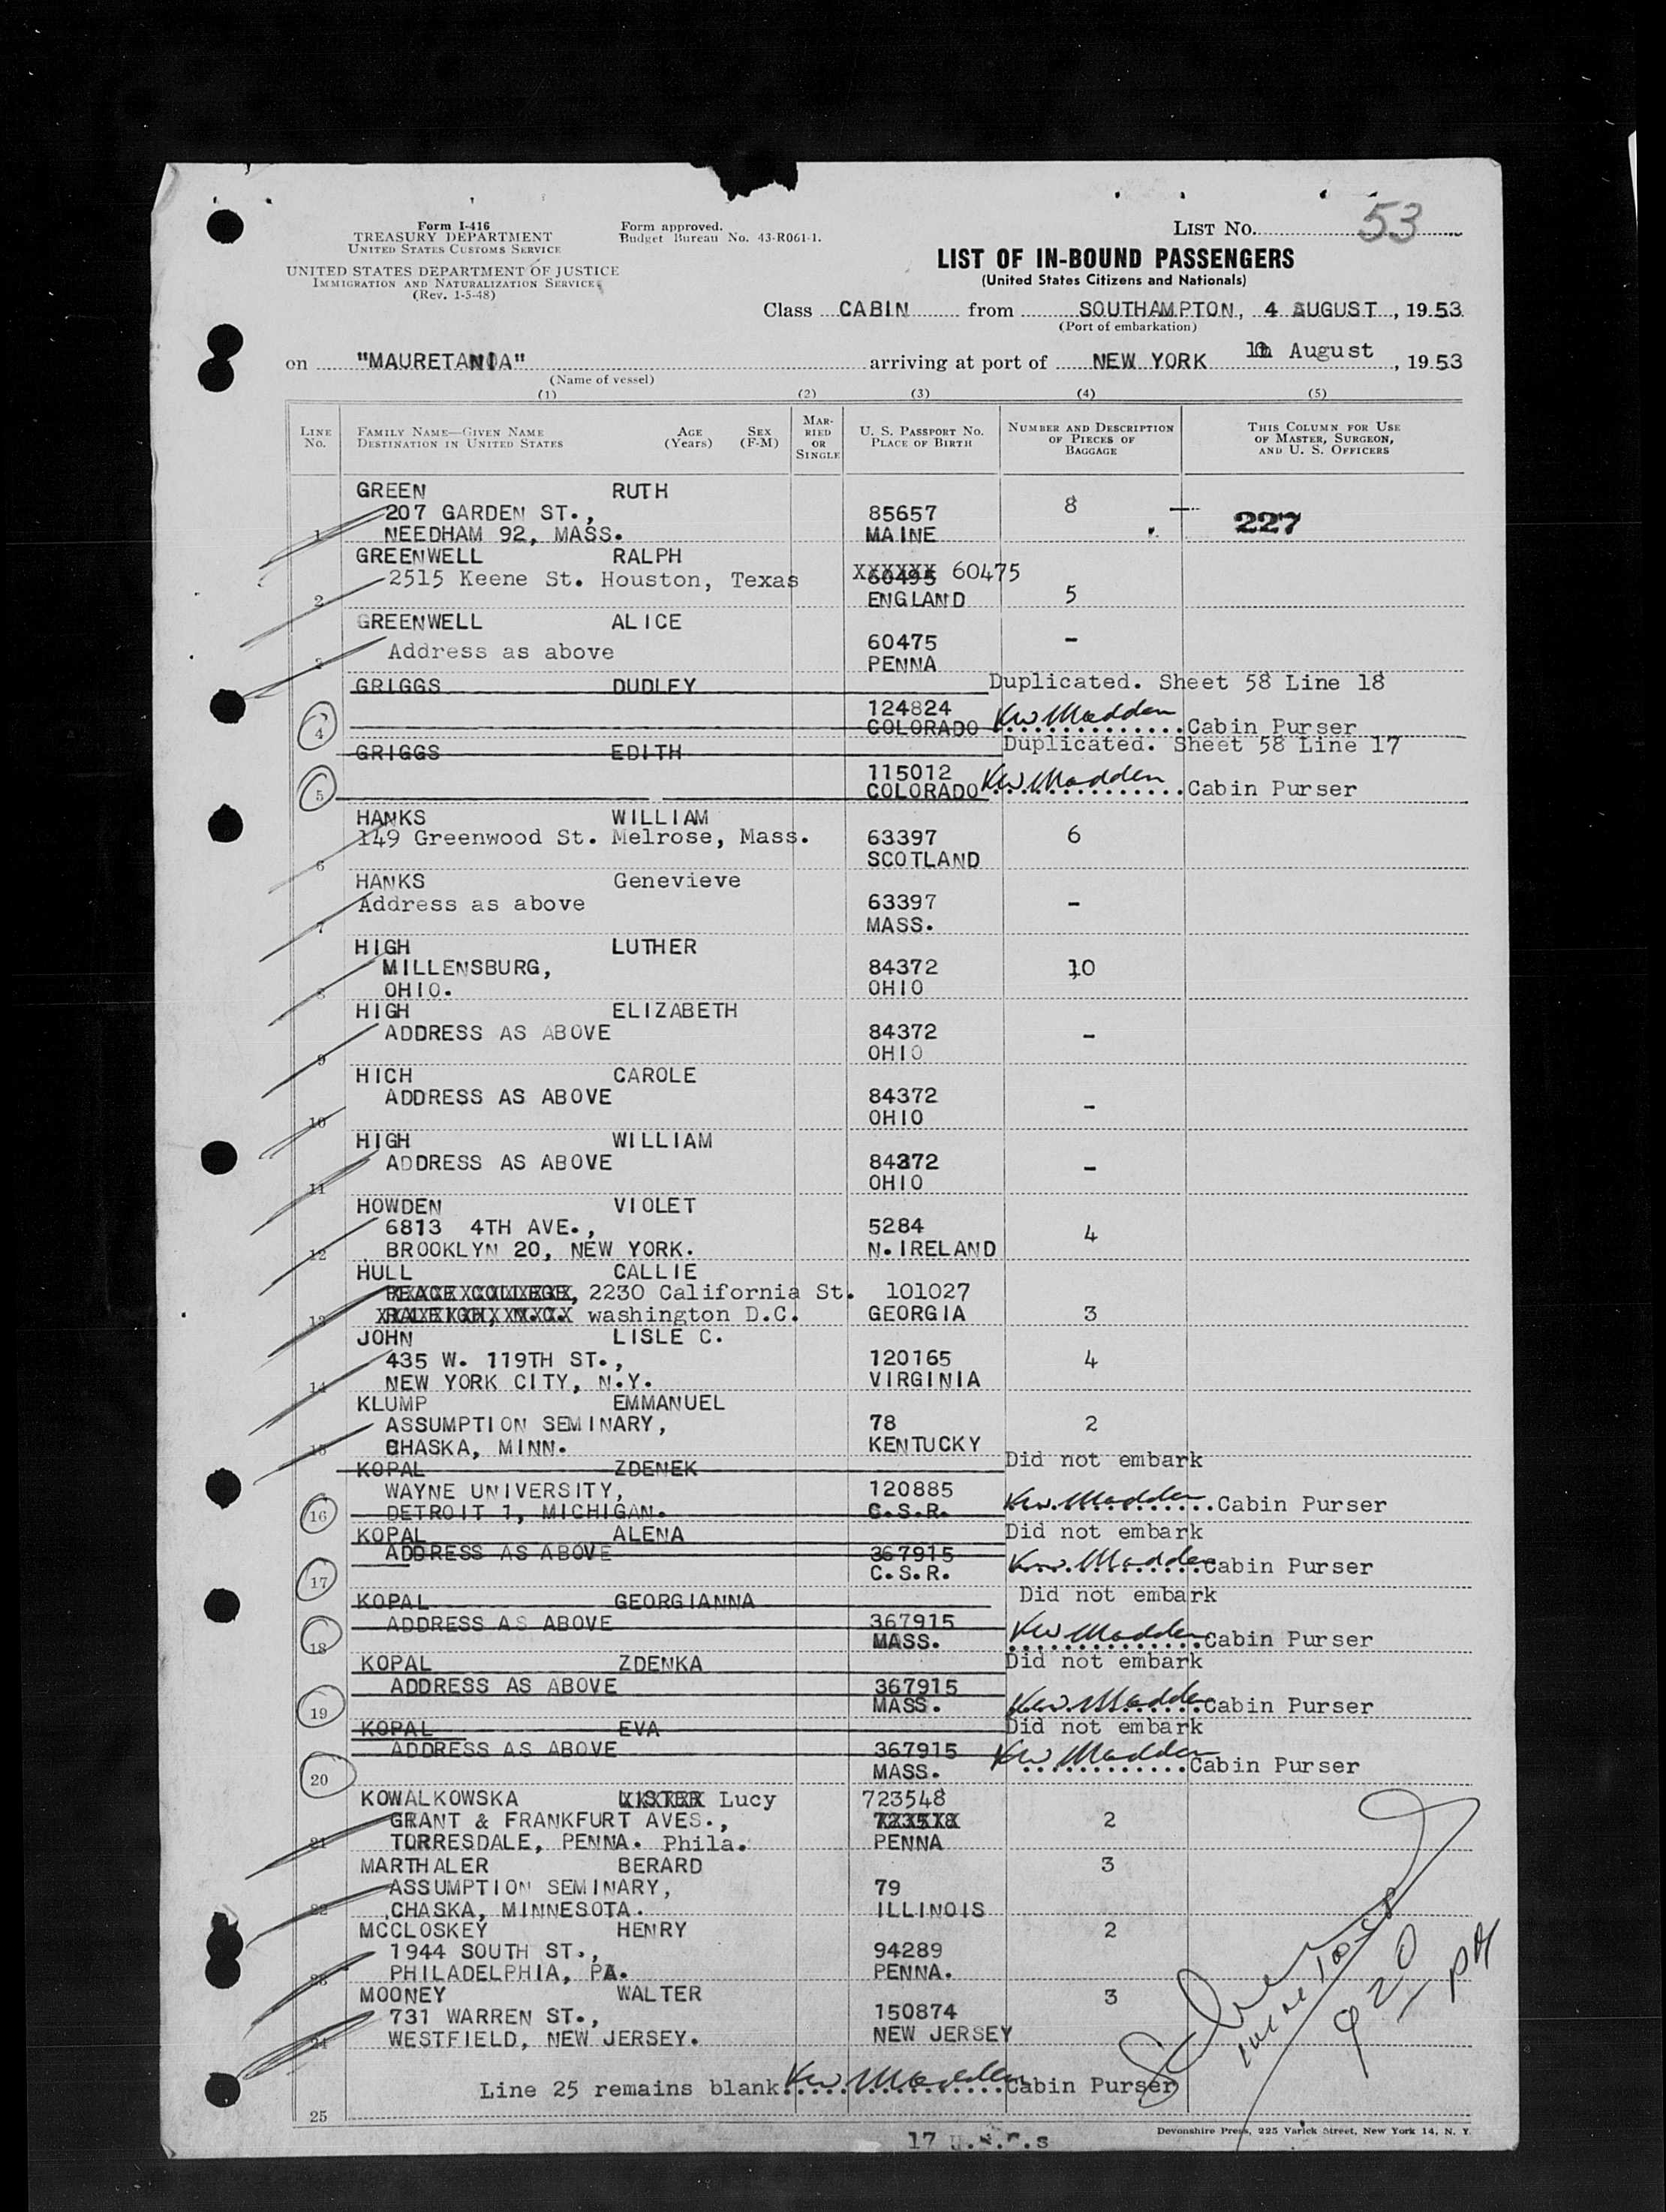 Form I-416
TREASURY DEPARTMENT
UNITED STATES CUSTOMS SERVICE
UNITED STATES DEPARTMENT OF JUSTICE
IMMIGRATION AND NATURALIZATION SERVICE
(Rev. 1-5-48)
Form approved.
Budget Bureau No. 43-R061-1.
LIST NO. 53
LIST OF IN-BOUND PASSENGERS
(United States Citizens and Nationals)
Class CABIN from SOUTHAMPTON, 4 AUGUST, 1953
(Port of embarkation)
on "MAURETANIA" arriving at port of NEW YORK August, 1953
(Name of vessel)
(1) (2) (3) (4) (5)
LINE NO. FAMILY NAME—GIVEN NAME DESTINATION IN UNITED STATES AGE (Years) SEX (F-M) MARRIED OR SINGLE U. S. PASSPORT NO. PLACE OF BIRTH NUMBER AND DESCRIPTION OF PIECES OF BAGGAGE THIS COLUMN FOR USE OF MASTER, SURGEON, AND U. S. OFFICERS
GREEN RUTH 8
207 GARDEN ST., 85657 227
1 NEEDHAM 92, MASS. MAINE
GREENWELL RALPH
2515 Keene St. Houston, Texas 60495 60475
2 ENGLAND 5
GREENWELL ALICE
Address as above 60475 -
3 PENNA
GRIGGS DUDLEY Duplicated. Sheet 58 Line 18
124824
4 COLORADO KW Madden Cabin Purser
GRIGGS EDITH Duplicated. Sheet 58 Line 17
115012
5 COLORADO KW Madden Cabin Purser
HANKS WILLIAM
149 Greenwood St. Melrose, Mass. 63397 6
6 SCOTLAND
HANKS Genevieve
Address as above 63397 -
7 MASS.
HIGH LUTHER
MILLENSBURG, 84372 10
8 OHIO. OHIO
HIGH ELIZABETH
ADDRESS AS ABOVE 84372 -
9 OHIO
HICH CAROLE
ADDRESS AS ABOVE 84372 -
10 OHIO
HIGH WILLIAM
ADDRESS AS ABOVE 84372 -
11 OHIO
HOWDEN VIOLET
6813 4TH AVE., 5284 4
12 BROOKLYN 20, NEW YORK. N.IRELAND
HULL CALLIE
PEACE COLLEGE, 2230 California St. 101027
13 RALEIGH, N.C. washington D.C. GEORGIA 3
JOHN LISLE C.
435 W. 119TH ST., 120165 4
14 NEW YORK CITY, N.Y. VIRGINIA
KLUMP EMMANUEL
ASSUMPTION SEMINARY, 78 2
15 CHASKA, MINN. KENTUCKY
KOPAL ZDENEK Did not embark
WAYNE UNIVERSITY, 120885
16 DETROIT 1, MICHIGAN. C.S.R. KW Madden Cabin Purser
KOPAL ALENA Did not embark
ADDRESS AS ABOVE 367915
17 C.S.R. KW Madden Cabin Purser
KOPAL GEORGIANNA Did not embark
ADDRESS AS ABOVE 367915
18 MASS. KW Madden Cabin Purser
KOPAL ZDENKA Did not embark
ADDRESS AS ABOVE 367915
19 MASS. KW Madden Cabin Purser
KOPAL EVA Did not embark
ADDRESS AS ABOVE 367915
20 MASS. KW Madden Cabin Purser
KOWALKOWSKA Lucy 723548
GRANT & FRANKFURT AVES., 2
21 TORRESDALE, PENNA. Phila. PENNA
MARTHALER BERARD 3
ASSUMPTION SEMINARY, 79
22 CHASKA, MINNESOTA. ILLINOIS
MCCLOSKEY HENRY 2
1944 SOUTH ST., 94289
23 PHILADELPHIA, PA. PENNA.
MOONEY WALTER 3
731 WARREN ST., 150874
24 WESTFIELD, NEW JERSEY. NEW JERSEY
920 PM
Line 25 remains blank. KW Madden Cabin Purser
25
Devonshire Press, 225 Varick Street, New York 14, N. Y.
17